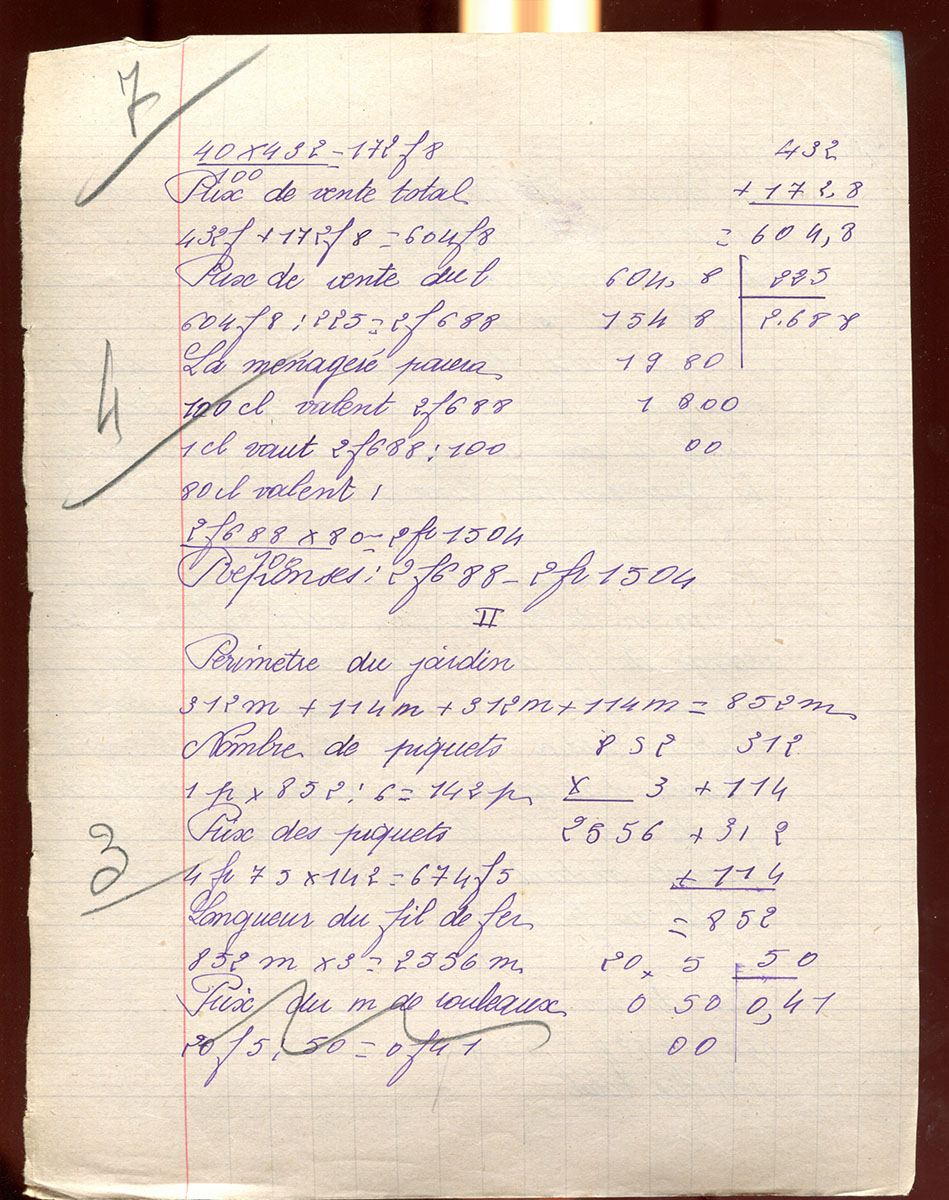 7
40 x 432 = 172f8
100
Prix de vente total
432f + 172f8 = 604f8
Prix de vente du l
604f8 : 225 = 2f688
La ménagère paiera
100 cl valent 2f688
1 cl vaut 2f688 : 100
80 cl valent :
2f688 x 80 = 2fr1504
100
Réponses : 2f688 – 2fr1504
432
+ 172,8
= 604,8
604,8 | 225
154 8 | 2.688
19 80
1 800
00
4
II
Périmètre du jardin
312m + 114m + 312m + 114m = 852m
Nombre de piquets
1 p x 852 : 6 = 142 p
Prix des piquets
4fr75 x 142 = 674f5
Longueur du fil de fer
852 m x 3 = 2556 m
Prix du m de rouleaux
20f5 : 50 = 0f41
852
x 3
2556
312
+ 114
+ 312
+ 114
= 852
20,5 | 50
0 50 | 0,41
00
3